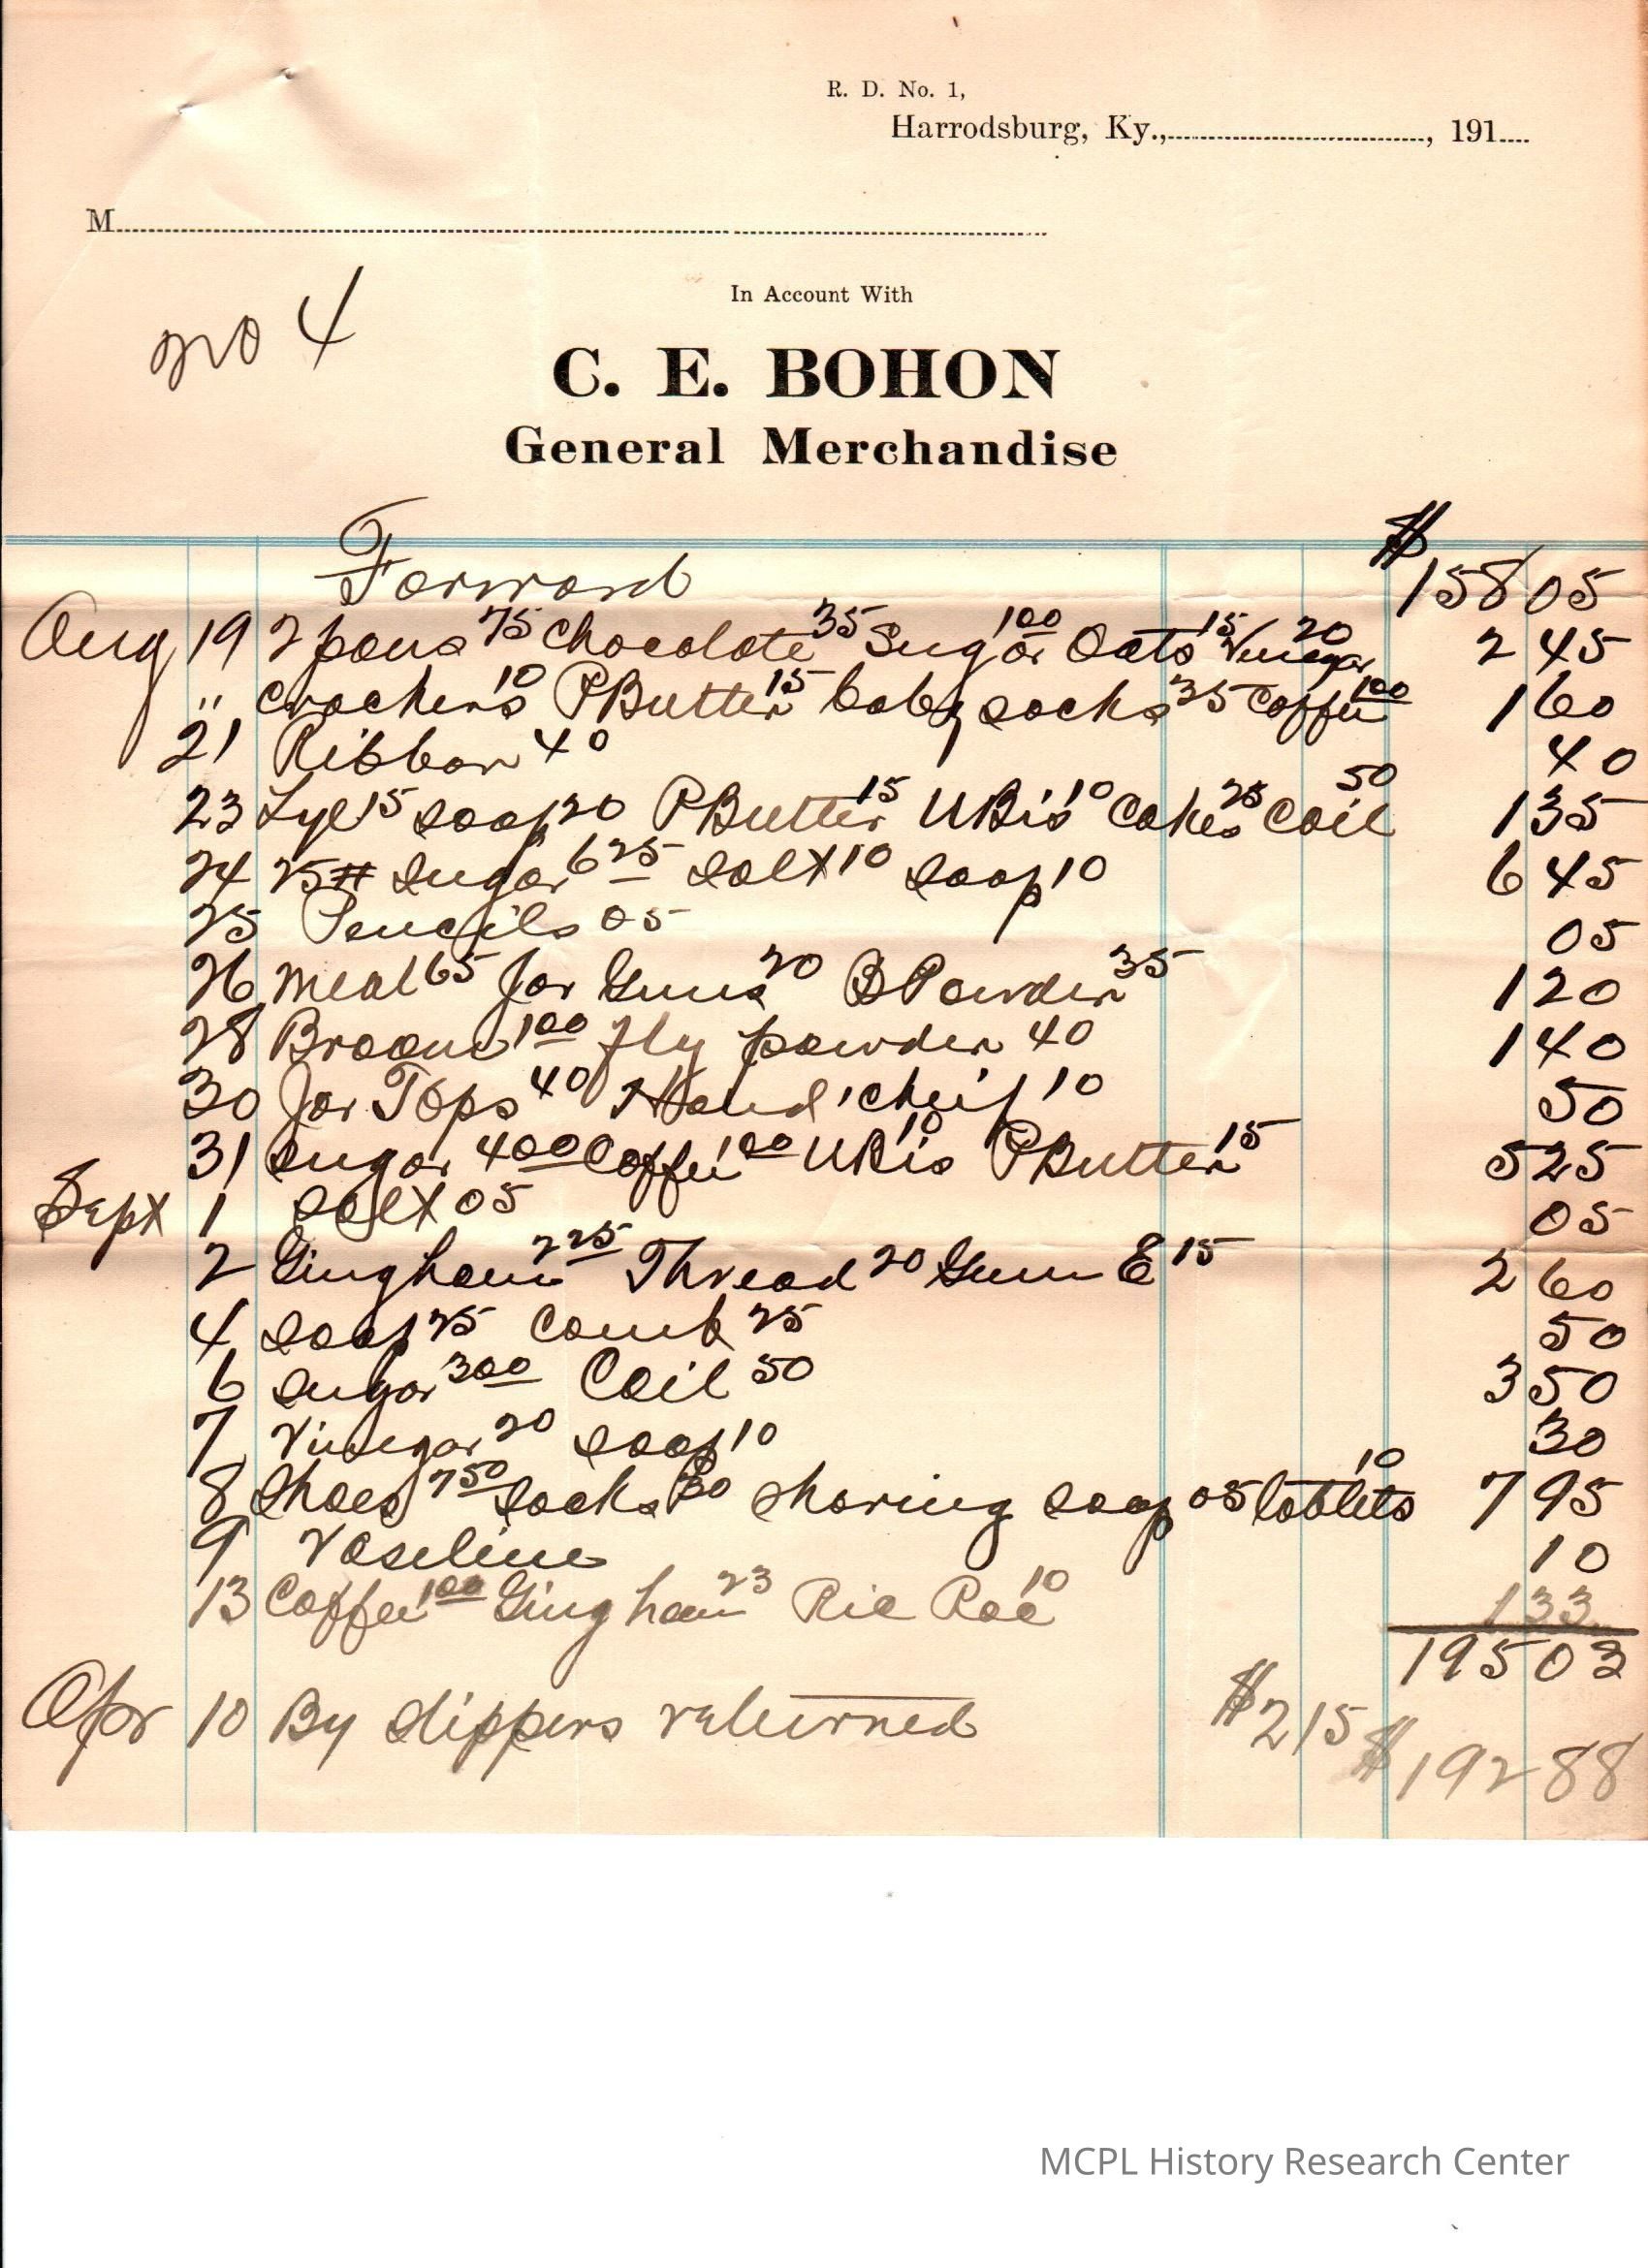 R. D. No. 1,
Harrodsburg, Ky., , 191
M
In Account With
no 4
C. E. BOHON
General Merchandise
Forward $ 158 05
Aug 19 2 pans 75 Chocolate 35 Sugar 1 00 Oats 15 Vinegar 20 2 45
" crackers 10 P Butter 15 baby socks 35 Coffee 1 00 1 60
21 Ribbon 40 40
23 Lye 15 soap 20 P Butter 15 UBis 10 Cakes 25 Coil 50 1 35
24 25# sugar 6 25 salt 10 soap 10 6 45
25 Pencils 05 05
26 Meal 65 Jar Gums 20 B Powder 35 1 20
28 Broom 1 00 fly powder 40 1 40
30 Jar Tops 40 Hand'cheif 10 50
31 sugar 4 00 Coffee 1 00 UBis 10 P Butter 15 5 25
Sept 1 salt 05 05
2 Gingham 2 25 Thread 20 Gum E 15 2 60
4 soap 25 Comb 25 50
6 sugar 3 00 Coil 50 3 50
7 Vinegar 20 soap 10 30
8 Shoes 7 50 socks 30 shaving soap 05 tablets 10 7 95
9 Vaseline 10
13 Coffee 1 00 Gingham 23 Ric Rac 10 1 33
195 03
Apr 10 By slippers returned $2 15 $192 88
MCPL History Research Center